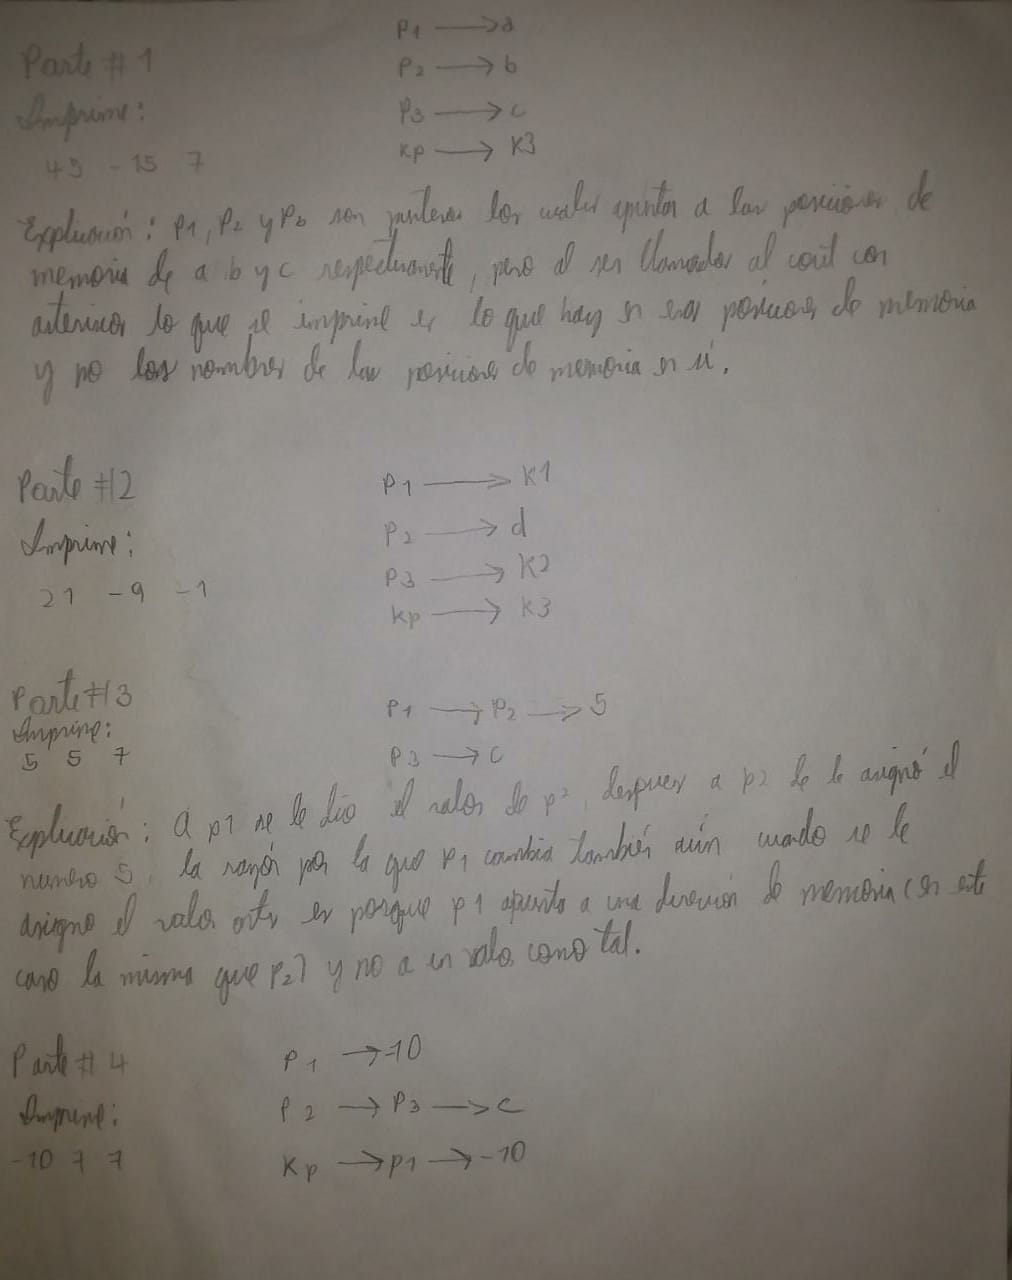 Parte # 1
P1 → a
P2 → b
P3 → c
Kp → K3
Imprime:
45 -15 7
Explicación: P1, P2 y P3 son punteros los cuales apuntan a las posiciones de
memoria de a b y c respectivamente, pero al ser llamados al cout con
asteriscos lo que se imprime es lo que hay en esas posiciones de memoria
y no los nombres de las posiciones de memoria en sí.
Parte #2
P1 → K1
P2 → d
P3 → K2
Kp → K3
Imprime:
21 -9 -1
Parte #3
P1 → P2 → 5
P3 → C
Imprime:
5 5 7
Explicación: a p1 se le dio el valor de p2, despues a p2 se le asignó el
numero 5, la razón por la que P1 cambia también aún cuando se le
asigno el valor antes es porque p1 apunta a una dirección de memoria (en este
caso la misma que P2) y no a un valor como tal.
Parte # 4
P1 → -10
P2 → P3 → C
Kp → P1 → -10
Imprime:
-10 7 7